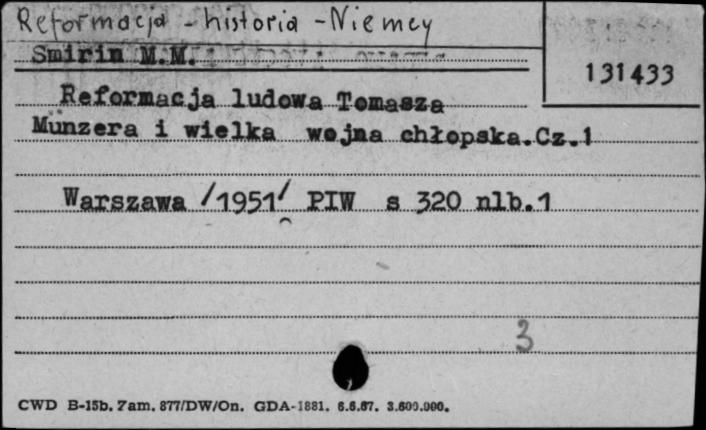 Reformacja - historia - Niemcy
Smirin M.M.
131433
Reformacja ludowa Tomasza
Münzera i wielka wojna chłopska.Cz.1
Warszawa /1951/ PIW s 320 nlb.1
3
CWD B-15b. Zam. 877/DW/On. GDA-1881. 6.6.67. 3.600.000.